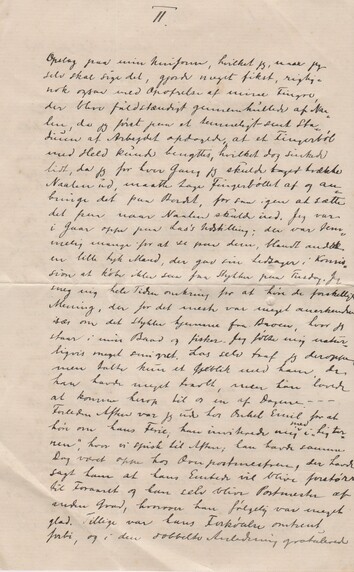 II.
Opslag paa min Uniform, hvilket jeg, naar jeg
selv skal sige det, gjorde meget fikst, rigtig-
nok ogsaa med Opofrelse af mine Fingre,
der blive fuldstændigt gennemhullede af Na-
len, da jeg først paa et temmeligt sent Sta-
dium af Arbejdet opdagede, at et Fingerbøl
med Held kunde benyttes, hvilket dog sinkede
lidt, da jeg for hver Gang jeg skulde have trække
Naalen ud, maatte tage Fingerbøllet af og an-
bringe det paa Bordet, for saa igen at sætte
det paa naar Naalen skulde ind. Jeg var
i Gaar oppe paa Udstilling; der var tem-
melig mange for at se paa dem, blandt andet
en lille tyk Mand, der gav sin Ledsager i Kommis-
sion at købe
mig hele Tiden omkring for at høre de forskellige
Mening, der for det meste var meget anerkendende
især om det Stykke hjemme fra Baaen, hvor jeg
staar i min Baad og fisker. Jeg følte mig natur-
ligvis meget smigret. selv traf jeg deroppe
men talte kun et Øjeblik med ham, da
han havde meget travlt, men han lovede
at komme herop til os en af Dagene. - - -
Forleden Aften var jeg ude hos Onkel Emil for at
høre om hans Ferie, han inviterede mig med i
hvor vi spiste til Aften, han havde samme
Dag været oppe hos Overpostmesteren, der havde
sagt ham at hans Embede vil blive
til Foraaret og han selv blive Postmester af
anden Grad, hvorover han følgelig var meget
glad. Tillige var hans Forkølelse omtrent
forbi, og i den dobbelte Anledning gratulerede